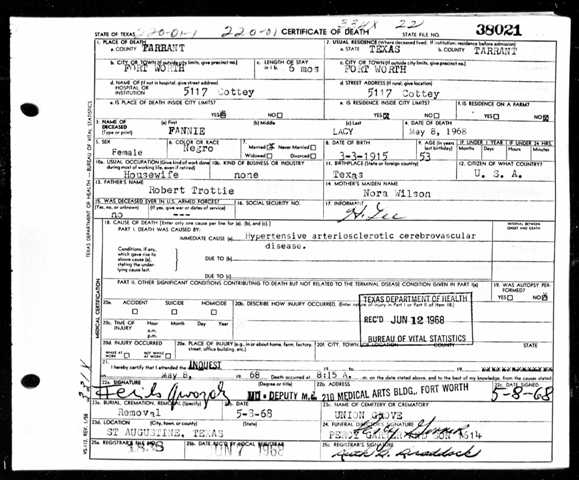 STATE OF TEXAS 220-01-1 220-01 CERTIFICATE OF DEATH 22 STATE FILE NO. 38021
1. PLACE OF DEATH
a. COUNTY TARRANT
2. USUAL RESIDENCE (Where deceased lived. If institution: residence before admission)
a. STATE TEXAS b. COUNTY TARRANT
b. CITY OR TOWN (If outside city limits, give precinct no.) FORT WORTH
c. LENGTH OF STAY in 1 b. 6 mos
c. CITY OR TOWN (If outside city limits, give precinct no.) FORT WORTH
d. NAME OF (If not in hospital, give street address) HOSPITAL OR INSTITUTION 5117 Cottey
d. STREET ADDRESS (If rural, give location) 5117 Cottey
e. IS PLACE OF DEATH INSIDE CITY LIMITS? YES NO
e. IS RESIDENCE INSIDE CITY LIMITS? YES NO
f. IS RESIDENCE ON A FARM? YES NO
3. NAME OF DECEASED (Type or print) (a) First FANNIE (b) Middle (c) Last LACY
4. DATE OF DEATH May 8, 1968
5. SEX Female
6. COLOR OR RACE Negro
7. Married Never Married Widowed Divorced
8. DATE OF BIRTH 3-3-1915
9. AGE (In years last birthday) 53
IF UNDER 1 YEAR Months Days
IF UNDER 24 HRS. Hours Minutes
10a. USUAL OCCUPATION (Give kind of work done during most of working life, even if retired) Housewife
10b. KIND OF BUSINESS OR INDUSTRY none
11. BIRTHPLACE (State or foreign country) Texas
12. CITIZEN OF WHAT COUNTRY? U. S. A.
13. FATHER'S NAME Robert Trottie
14. MOTHER'S MAIDEN NAME Nora Wilson
15. WAS DECEASED EVER IN U.S. ARMED FORCES? (Yes, no, or unknown) no (If yes, give war or dates of service) ---
16. SOCIAL SECURITY NO.
17. INFORMANT
18. CAUSE OF DEATH [Enter only one cause per line for (a), (b), and (c).]
INTERVAL BETWEEN ONSET AND DEATH
PART I. DEATH WAS CAUSED BY:
IMMEDIATE CAUSE (a) Hypertensive arteriosclerotic cerebrovascular
disease.
Conditions, if any, which gave rise to above cause (a), stating the underlying cause last.
DUE TO (b)
DUE TO (c)
PART II. OTHER SIGNIFICANT CONDITIONS CONTRIBUTING TO DEATH BUT NOT RELATED TO THE TERMINAL DISEASE CONDITION GIVEN IN PART I(a)
19. WAS AUTOPSY PERFORMED? YES NO
20a. ACCIDENT SUICIDE HOMICIDE
20b. DESCRIBE HOW INJURY OCCURRED. (Enter nature of injury in Part I or Part II of item 18.)
TEXAS DEPARTMENT OF HEALTH
REC'D JUN 12 1968
BUREAU OF VITAL STATISTICS
20c. TIME OF INJURY Hour Month Day Year
a.m.
p.m.
20d. INJURY OCCURRED WHILE AT WORK NOT WHILE AT WORK
20e. PLACE OF INJURY (e.g., in or about home, farm, factory, street, office building, etc.)
20f. CITY, TOWN, STATE
21. I hereby certify that I attended INQUEST
May 8, 68 Death occurred at 8:15 A. m. on the date stated above, and to the best of my knowledge, from the causes stated.
22a. SIGNATURE (Degree or title) DEPUTY M.E.
22b. ADDRESS 210 MEDICAL ARTS BLDG., FORT WORTH
22c. DATE SIGNED 5-8-68
23a. BURIAL, CREMATION, REMOVAL (Specify) Removal
23b. DATE 5-8-68
23c. NAME OF CEMETERY OR CREMATORY UNION GROVE
23d. LOCATION (City, town, or county) (State) ST AUGUSTINE, TEXAS
24. FUNERAL DIRECTOR'S SIGNATURE
PERCY AND SON
25a. REGISTRAR'S FILE NO.
25b. DATE REC'D BY LOCAL REGISTRAR JUN 7 1968
25c. REGISTRAR'S SIGNATURE
TEXAS DEPARTMENT OF HEALTH — BUREAU OF VITAL STATISTICS
MEDICAL CERTIFICATION
VS-112, REV. 1/58